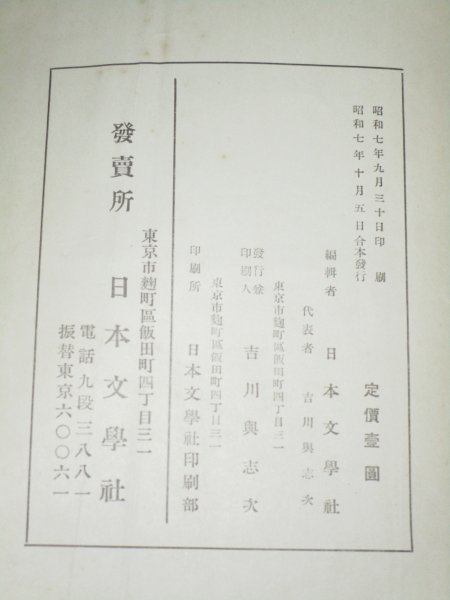 昭和七年九月三十日印刷
昭和七年十月五日合本發行
定價壹圓
編輯者 日本文學社
代表者 吉川與志次
東京市麴町區飯田町四丁目三一
發行兼印刷人 吉川與志次
東京市麴町區飯田町四丁目三一
印刷所 日本文學社印刷部
東京市麴町區飯田町四丁目三一
發賣所 日本文學社
電話九段三八八一
振替東京六〇〇六一